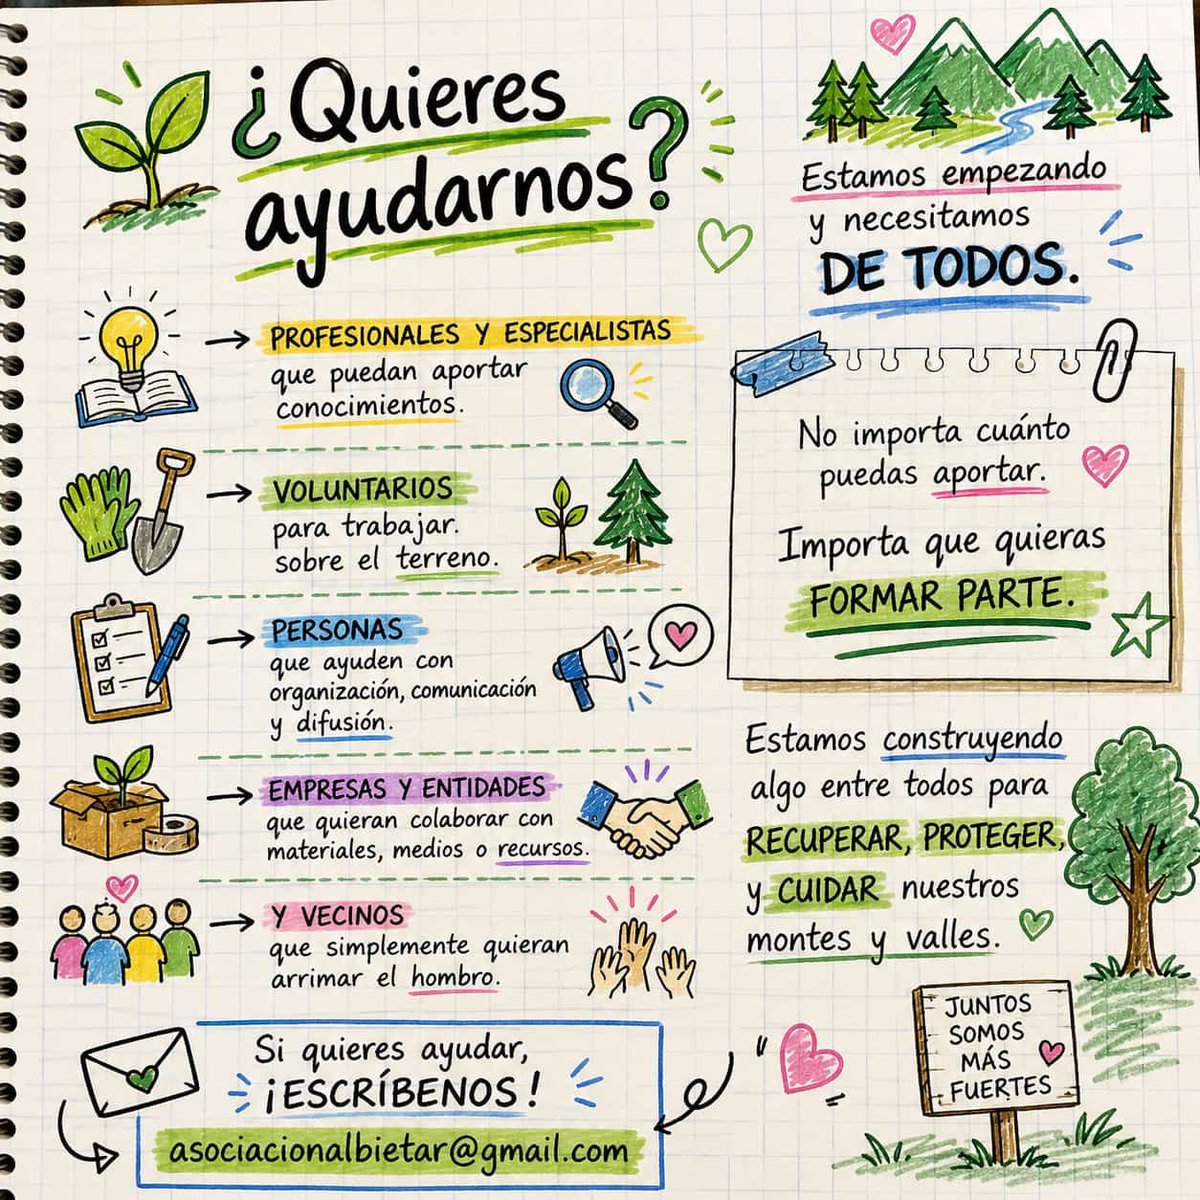 ¿Quieres
ayudarnos?
PROFESIONALES Y ESPECIALISTAS
que puedan aportar
conocimientos.
VOLUNTARIOS
para trabajar.
sobre el terreno.
PERSONAS
que ayuden con
organización, comunicación
y difusión.
EMPRESAS Y ENTIDADES
que quieran colaborar con
materiales, medios o recursos.
Y VECINOS
que simplemente quieran
arrimar el hombro.
Si quieres ayudar,
¡ESCRÍBENOS!
asociacionalbietar@gmail.com
Estamos empezando
y necesitamos
DE TODOS.
No importa cuánto
puedas aportar.
Importa que quieras
FORMAR PARTE.
Estamos construyendo
algo entre todos para
RECUPERAR, PROTEGER,
y CUIDAR nuestros
montes y valles.
JUNTOS
SOMOS
MÁS
FUERTES